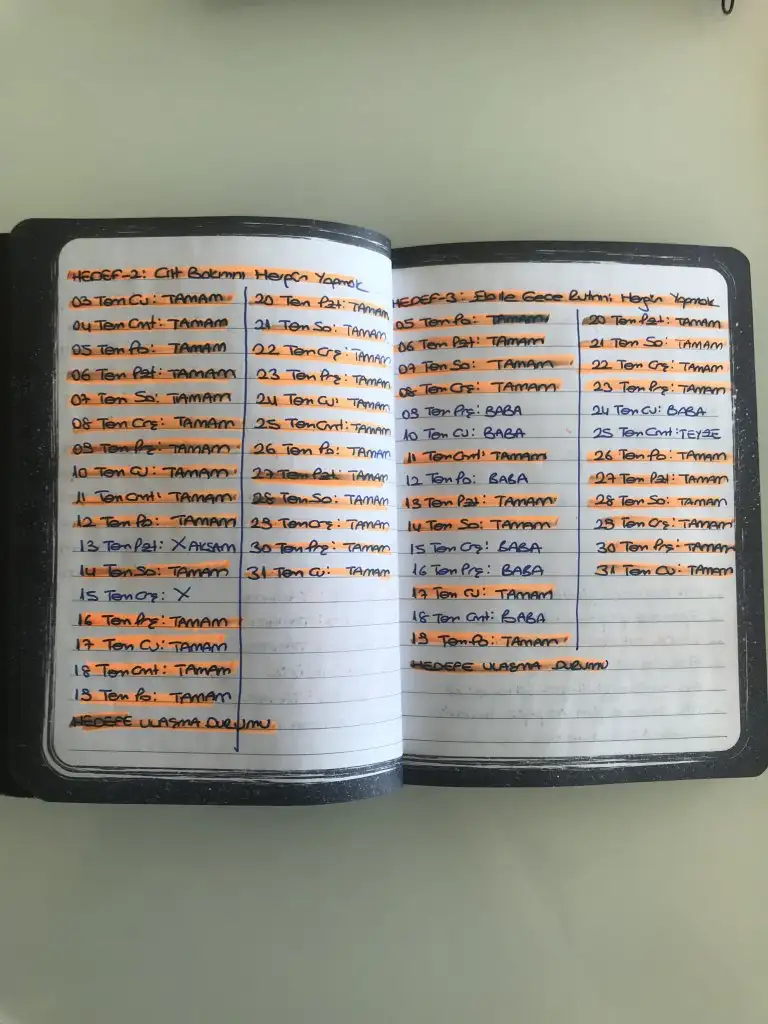 HEDEF-2: Cilt Bakımını Hergün Yapmak
03 Tem Cu: TAMAM
04 Tem Cmt: TAMAM
05 Tem Pa: TAMAM
06 Tem Pzt: TAMAM
07 Tem Sa: TAMAM
08 Tem Çrş: TAMAM
09 Tem Prş: TAMAM
10 Tem Cu: TAMAM
11 Tem Cmt: TAMAM
12 Tem Pa: TAMAM
13 Tem Pzt: X AKŞAM
14 Tem Sa: TAMAM
15 Tem Çrş: X
16 Tem Prş: TAMAM
17 Tem Cu: TAMAM
18 Tem Cmt: TAMAM
19 Tem Pa: TAMAM
HEDEFE ULAŞMA DURUMU
20 Tem Pzt: TAMAM
21 Tem Sa: TAMAM
22 Tem Çrş: TAMAM
23 Tem Prş: TAMAM
24 Tem Cu: TAMAM
25 Tem Cmt: TAMAM
26 Tem Pa: TAMAM
27 Tem Pzt: TAMAM
28 Tem Sa: TAMAM
29 Tem Çrş: TAMAM
30 Tem Prş: TAMAM
31 Tem Cu: TAMAM
HEDEF-3: Ela ile Gece Rutinini Hergün Yapmak
05 Tem Pa: TAMAM
06 Tem Pzt: TAMAM
07 Tem Sa: TAMAM
08 Tem Çrş: TAMAM
09 Tem Prş: BABA
10 Tem Cu: BABA
11 Tem Cmt: TAMAM
12 Tem Pa: BABA
13 Tem Pzt: TAMAM
14 Tem Sa: TAMAM
15 Tem Çrş: BABA
16 Tem Prş: BABA
17 Tem Cu: TAMAM
18 Tem Cmt: BABA
19 Tem Pa: TAMAM
HEDEFE ULAŞMA DURUMU
20 Tem Pzt: TAMAM
21 Tem Sa: TAMAM
22 Tem Çrş: TAMAM
23 Tem Prş: TAMAM
24 Tem Cu: BABA
25 Tem Cmt: TEYZE
26 Tem Pa: TAMAM
27 Tem Pzt: TAMAM
28 Tem Sa: TAMAM
29 Tem Çrş: TAMAM
30 Tem Prş: TAMAM
31 Tem Cu: TAMAM